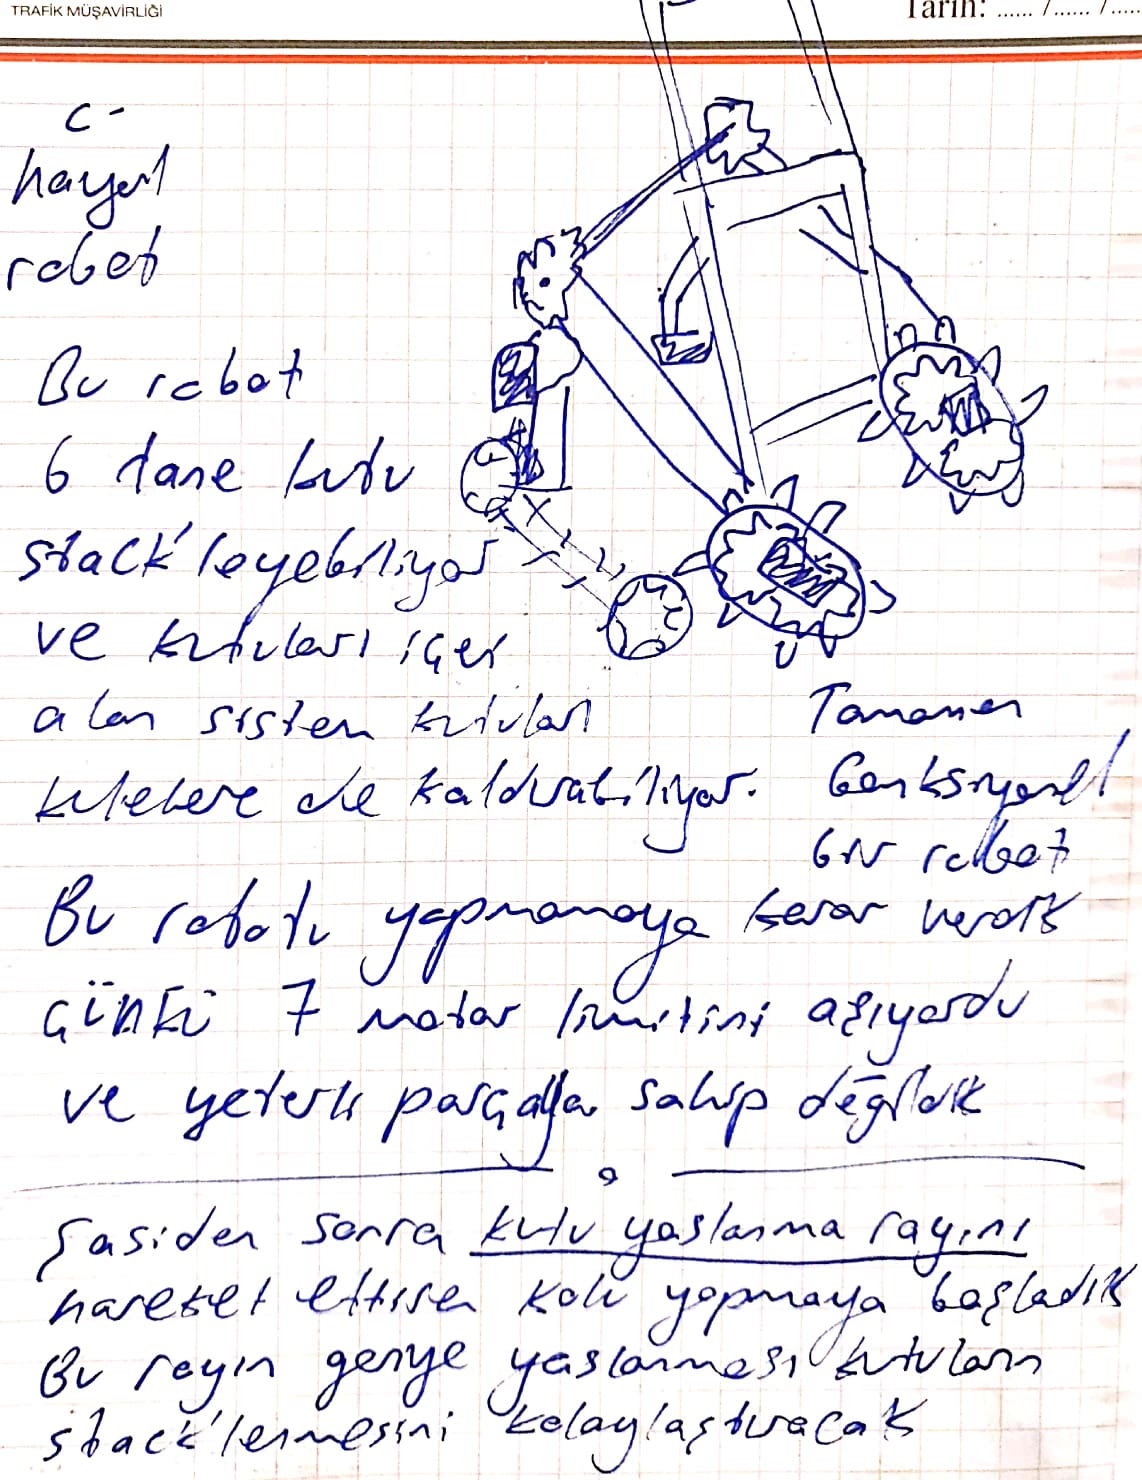 TRAFİK MÜŞAVİRLİĞİ
Tarih: ...... /...... /.....
C-
hayal
robot
Bu robot
6 tane kutu
stack'leyebiliyor
ve kutuları içeri
alan sistem kutuları
kulelere de kaldırabiliyor.
Tamamen
fonksiyonel
bir robot
Bu robotu yapmamaya karar verdik
çünkü 7 motor limitini aşıyordu
ve yeterli parçaya sahip değildik
Şasiden sonra kutu yaslanma rayını
hareket ettiren kolu yapmaya başladık
Bu rayın geriye yaslanması kutuların
stack'lenmesini kolaylaştıracak